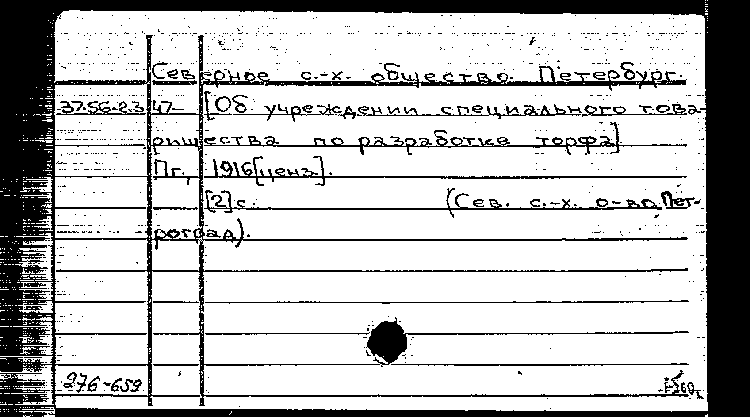 Северное с.-х. общество. Петербург.
37-56-23 47- [Об учреждении специального това-
рищества по разработке торфа]
Пг., 1916[ценз].
[2]с. (Сев. с.-х. о-во. Пет-
роград).
276-659